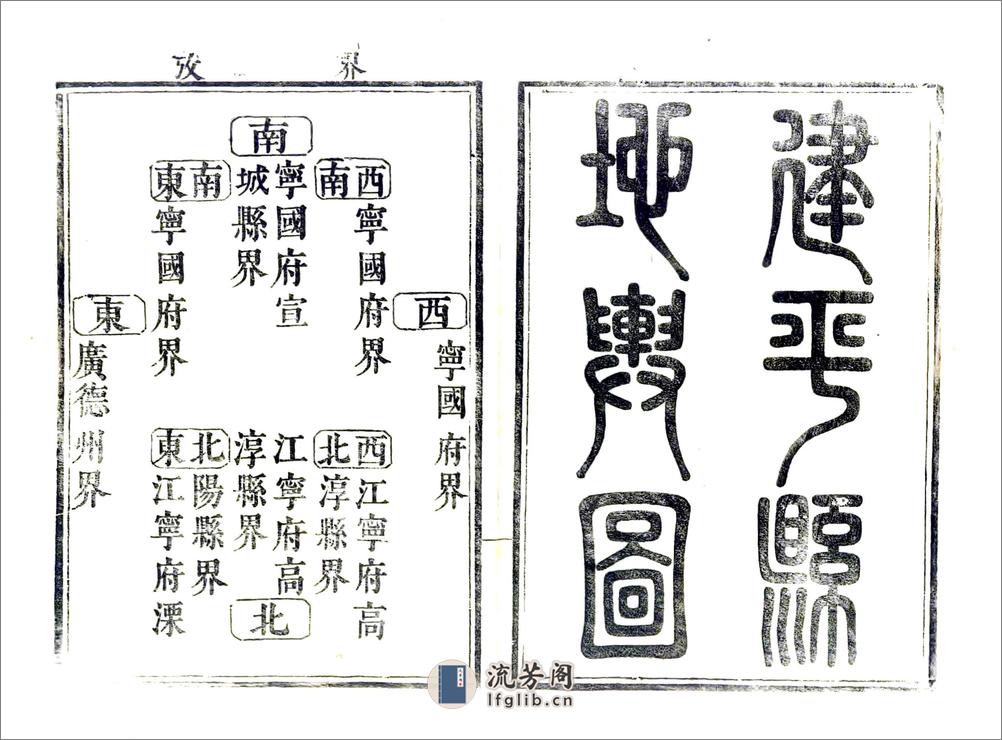 建平縣
地輿圖
界攷
西
寧國府界
西南
寧國府界
南
寧國府宣
城縣界
東南
寧國府界
東
廣德州界
西北
江寧府高
淳縣界
江寧府高
淳縣界
北
東北
江寧府溧
陽縣界
流芳阁
lfglib.cn